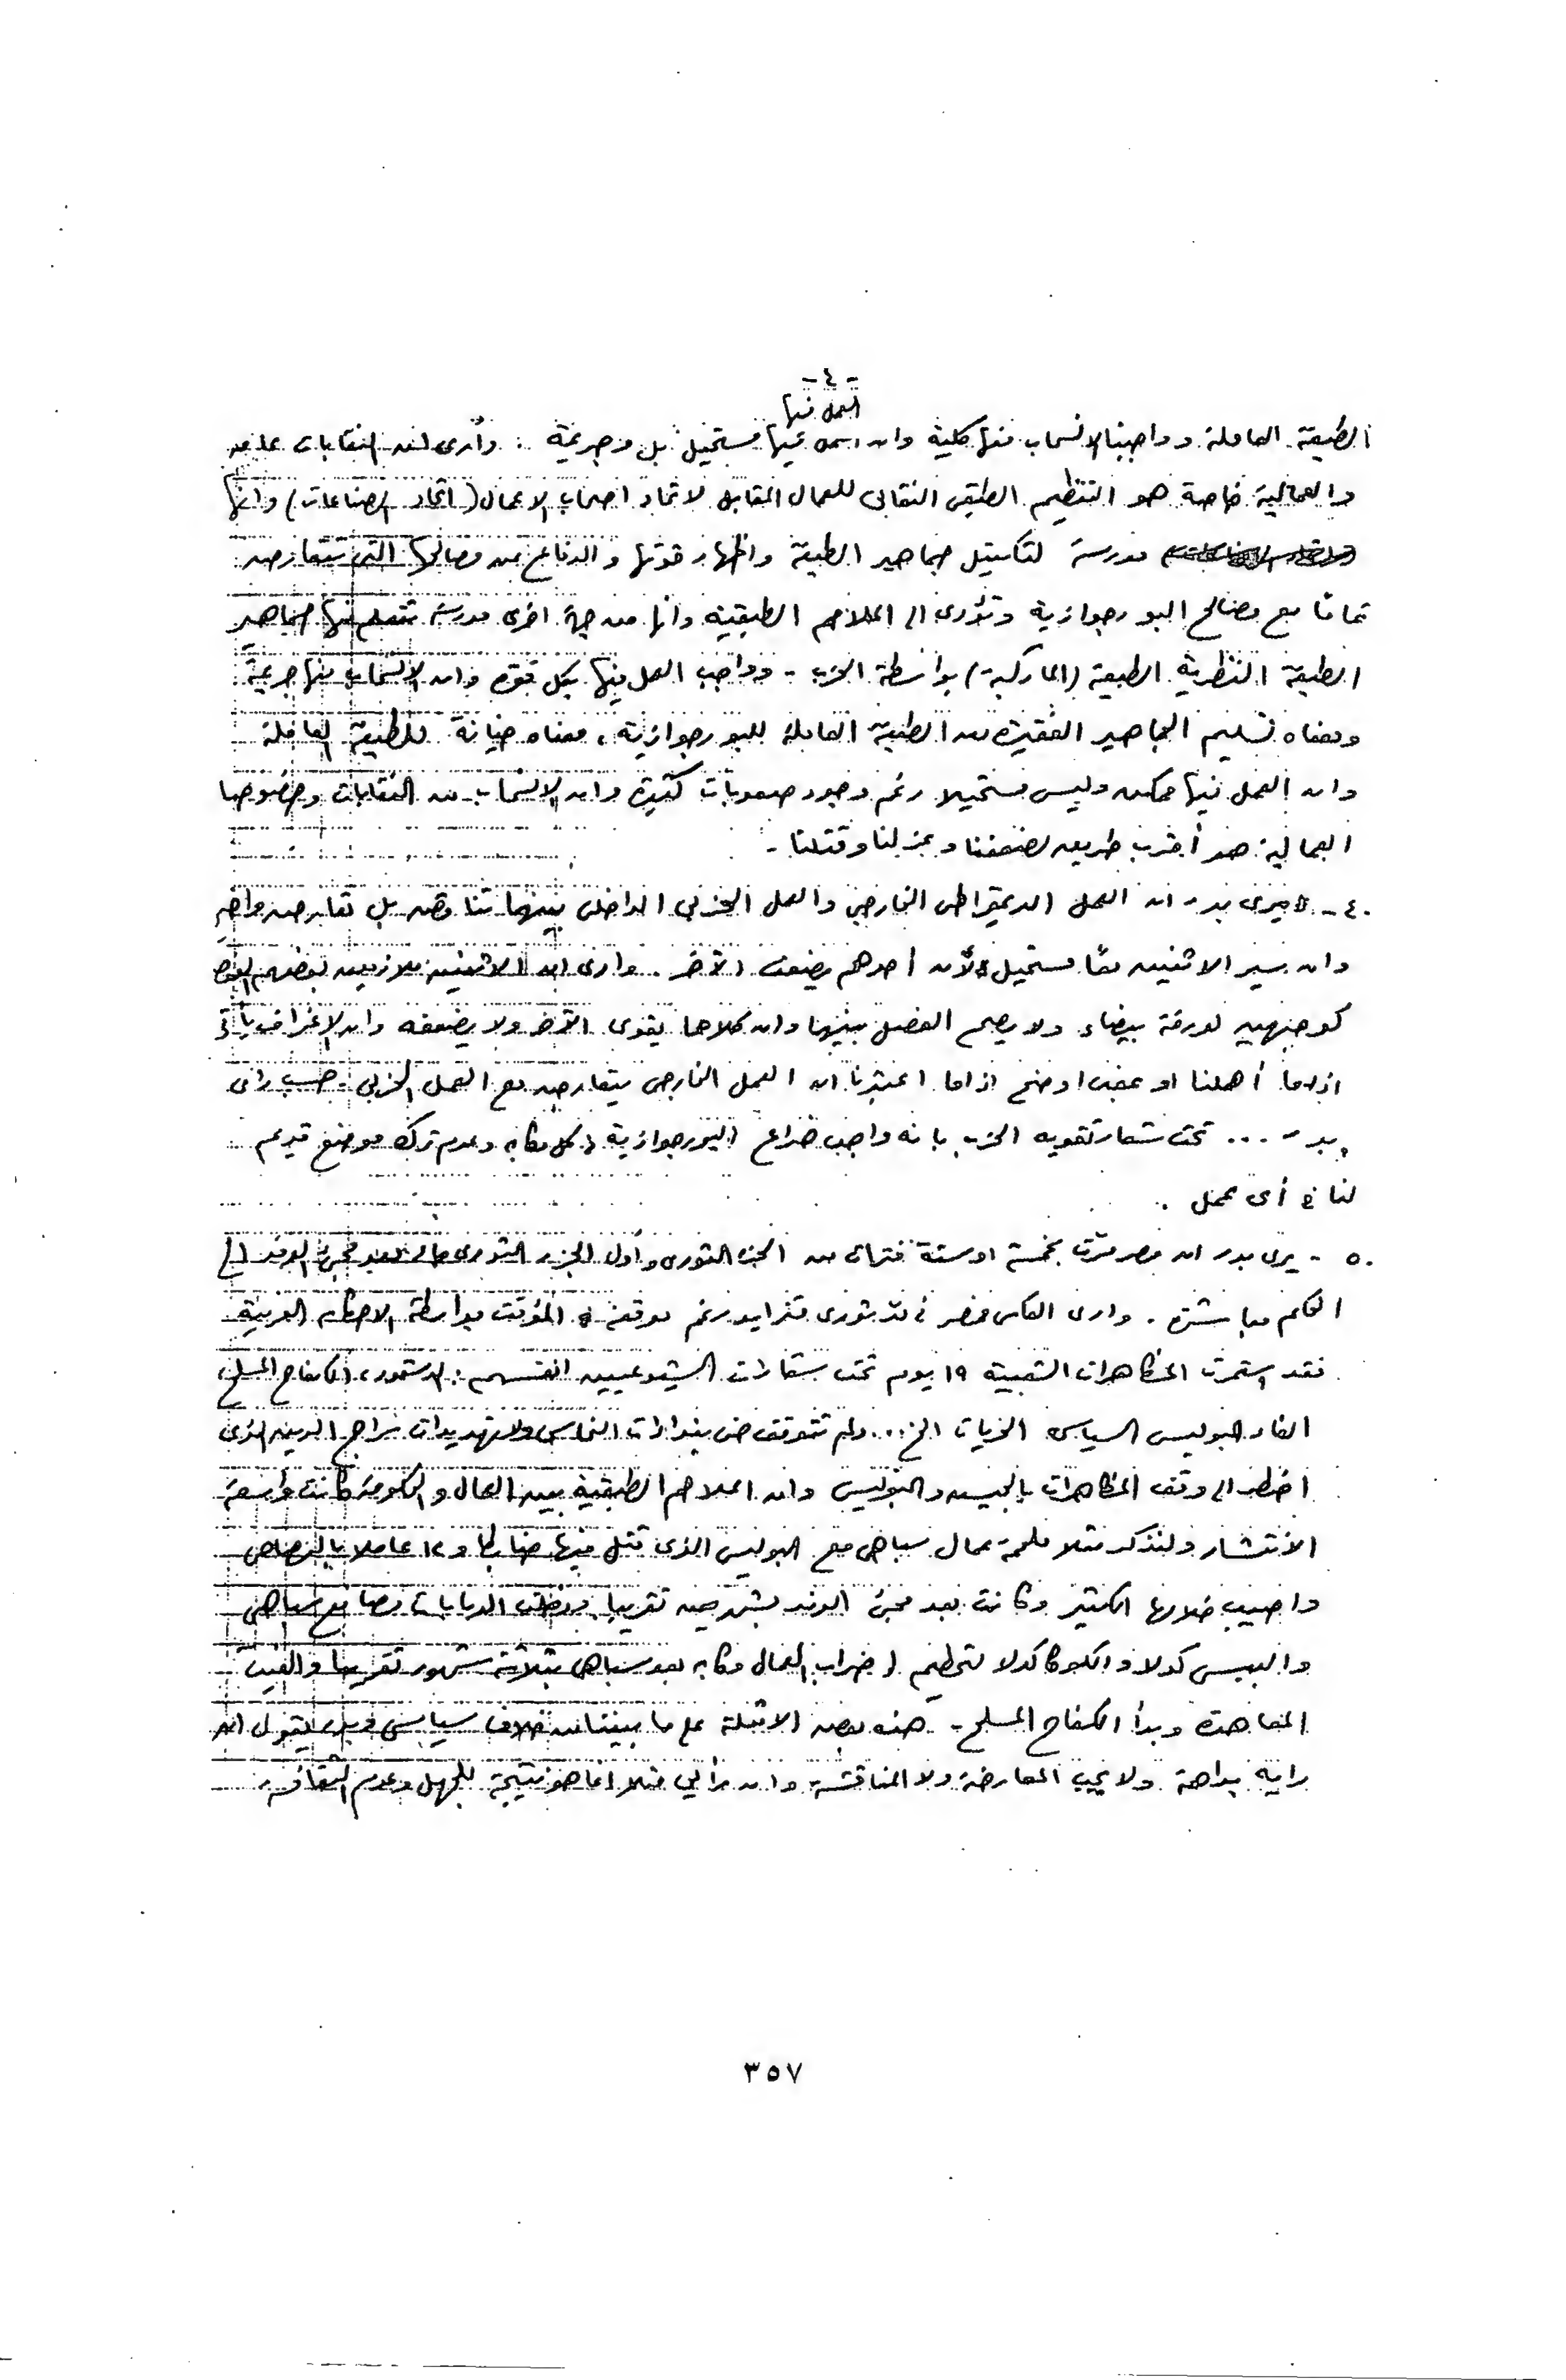 - ٤ -
العمل فيها
الطبقة العاملة وواجبنا الانسحاب منها كلية وان العمل فيها مستحيل بل وجريمة . وأرى أن النقابات عامة
والعمالية خاصة هو التنظيم الطبقى النقابى للعمال المقابل لاتحاد اصحاب الاعمال (اتحاد الصناعات) وانها
مدرسة لتكتيل جماهير الطبقة واظهار قوتها والدفاع عن مصالحها التى تتعارض
تماما مع مصالح البورجوازية وتؤدى الى الملاحم الطبقية وانها من جهة اخرى مدرسة تتعلم فيها جماهير
الطبقة النظرية الطبقية (الماركسية) بواسطة الحزب - وواجب العمل فيها بكل قوة وان الانسحاب منها جريمة
ومعناه تسليم الجماهير الفقيرة من الطبقة العاملة للبورجوازية ، معناه خيانة للطبقة العاملة
وان العمل فيها ممكن وليس مستحيلا رغم وجود صعوبات كثيرة وان الانسحاب من النقابات وخصوصا
العمالية هو أقرب طريق لضعفنا وعزلنا وقتلنا -
٤ - يرى بدر ان العمل الديمقراطى الخارجى والعمل الحزبى الداخلى بينهما تناقض بل تعارض واضح
وان سير الاثنين معا مستحيل لأن أحدهم يضعف الآخر . وارى ان الاثنين ملازمين لبعضهم البعض
كوجهين لورقة بيضاء ولا يصح الفصل بينهما وان كلاهما يقوى الآخر ولا يضعفه وان الانحراف يأتى
اذا ما أهملنا احد اذا ما اعتبرنا ان العمل الخارجى يتعارض مع العمل الحزبى - حسب راى
بدر - ... تحت شعار تقوية الحزب بانه واجب خداع البورجوازية فى كل مكان وعدم ترك موضع قديم
لنا فى أى عمل .
٥ - يرى بدر ان مصر مرت بخمسة او ستة فترات من الجزر الثورى وأول الجزر الثورى بعد مجئ الوفد الى
الحكم مباشرة . وارى العكس فمصر فى مد ثورى متزايد رغم توقفه المؤقت بواسطة الاحكام العرفية
فقد استمرت المظاهرات الشعبية ١٩ يوم تحت شعارات الشيوعيين انفسهم : الكفاح المسلح ،
الغاء البوليس السياسى الحريات الخ ... ولم تتوقف حتى بنداءات النحاس ولا تهديدات سراج الدين الذى
اضطر الى وقف المظاهرات بالجيش والبوليس وان الملاحم الطبقية بين العمال والحكومة كانت واسعة
الانتشار ولنذكر مثلا ملحمة عمال سباهى مع البوليس الذى قتل فيها ضابط و١٢ عاملا بالرصاص
واصيب خلالها الكثير وكانت بعد مجئ الوفد بشهرين تقريبا ودخلت الدبابات مصانع سباهى
والبيبسى كولا والكوكاكولا لتحطيم اضراب العمال وكان بعد سباهى بثلاثة شهور تقريبا والغيت
المعاهدة وبدأ الكفاح المسلح - هذه بعض الامثلة على ما بيننا من خلاف سياسى يقول ان
رايه بداهة ولا يجب المعارضة ولا المناقشة وان رأيى مثلا انما هو نتيجة للجهل وعدم الثقافة .
٣٥٧